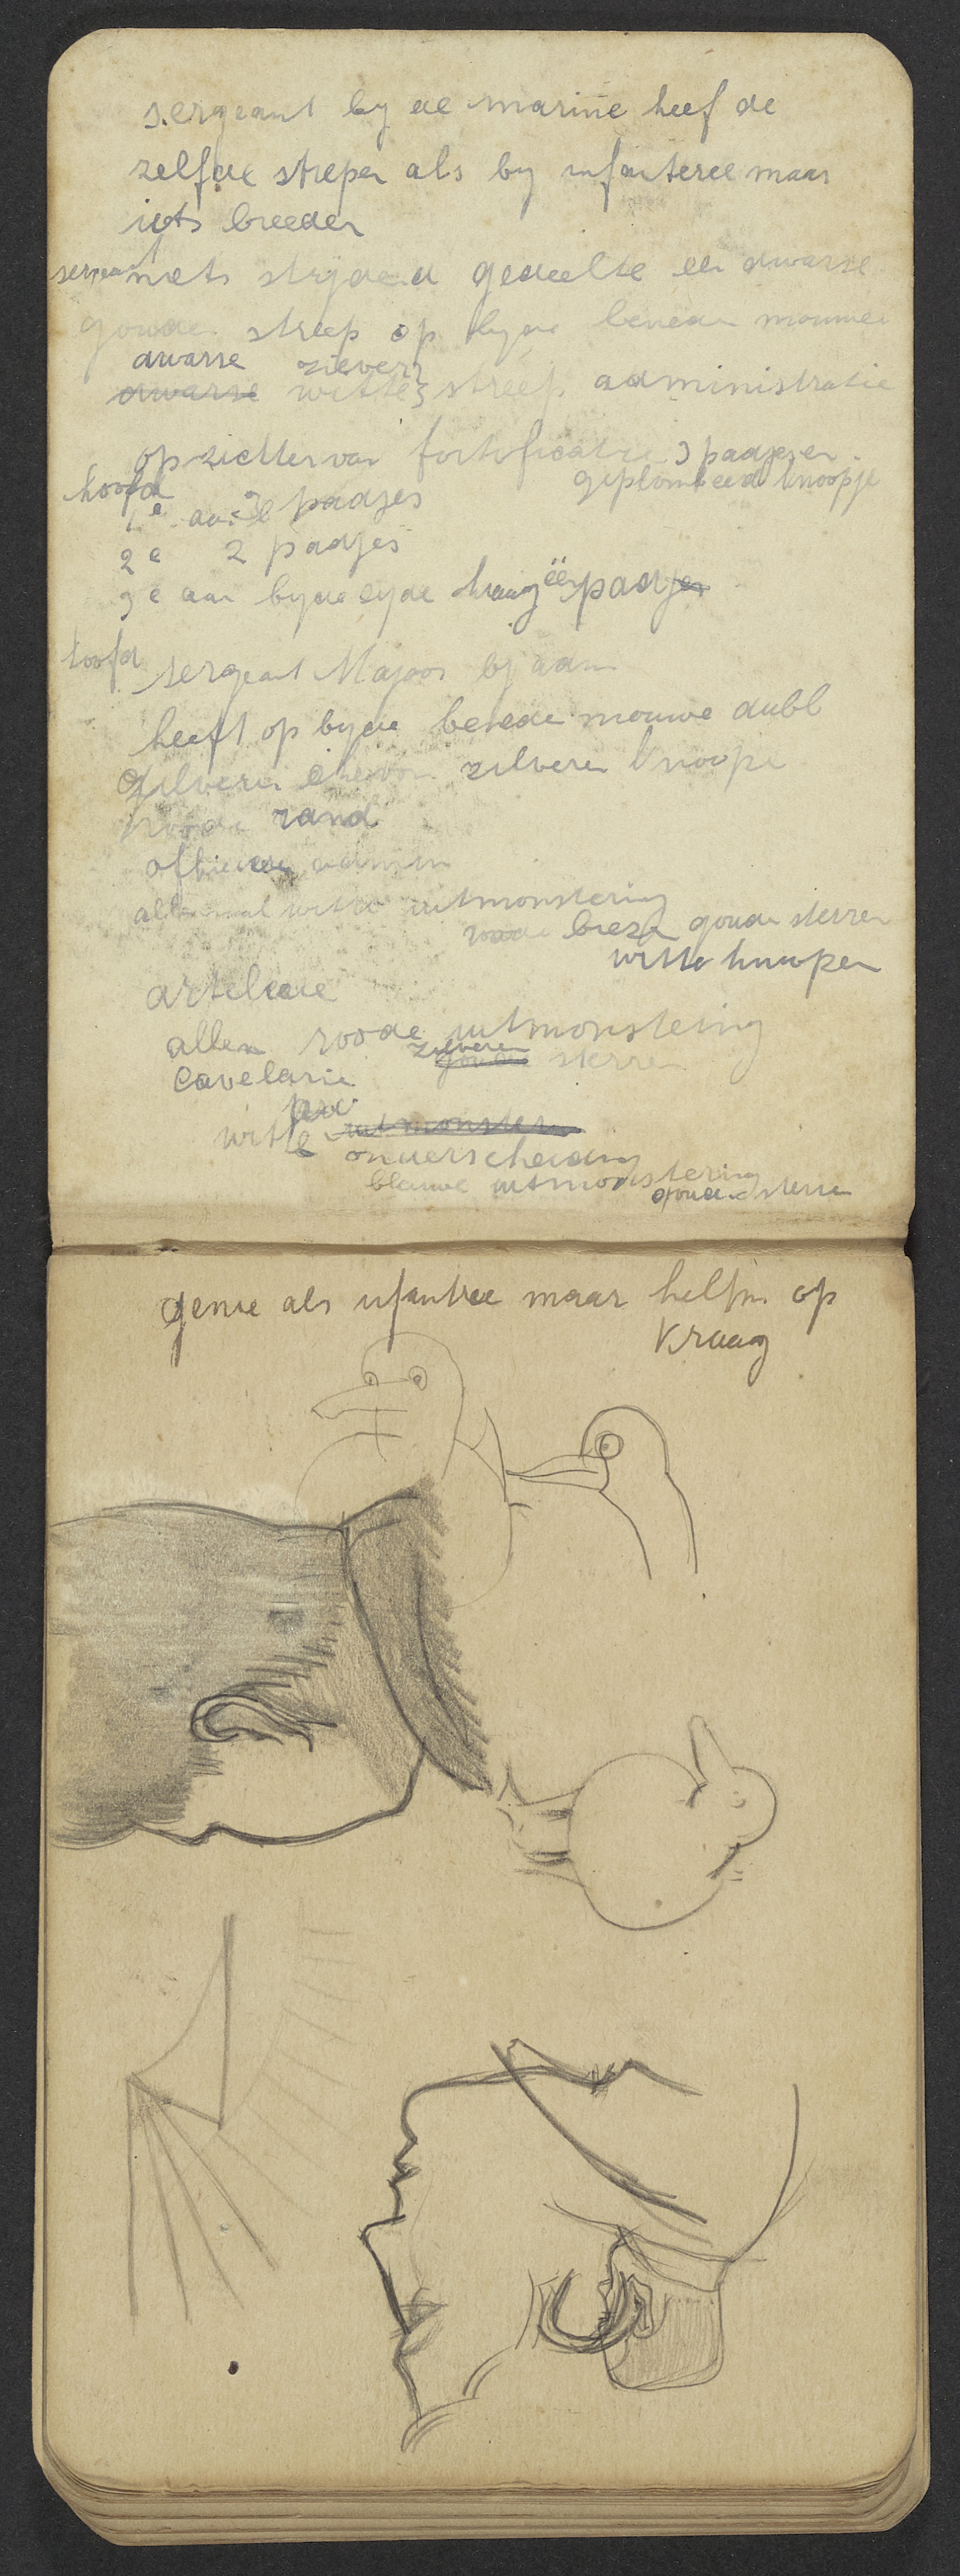 sergeant by de marine heef de
zelfde strepen als by infanterie maar
iets breeder
sergeant niets strydend gedeelte een dwarse
gouden streep op byde beneden mouwen
dwarse zilveren
dwarse witte streep administratie
opzichter van fortificatie 3 padjes en
hoofd geplombeerd knoopje
1e aan 3 padjes
2e 2 padjes
3e aan byde zyde kraag één padjes
hoofd sergeant Majoor by adm
heeft op byde beneden mouwe dubb
zilveren chevron zilveren knoope
roode rand
officieren admin
allemaal witte uitmonstering
roode bieze gouden sterren
witte knoopen
artelerie
allen roode uitmonstering
zilveren
gouden sterren
Cavelarie
witte uitmonster
onderscheiding
blauwe uitmonstering
gouden sterren
genie als infantrie maar helfm op
kraag